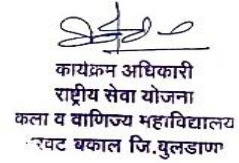 कार्यक्रम अधिकारी
राष्ट्रीय सेवा योजना
कला व वाणिज्य महाविद्यालय
रवट बकाल जि.बुलडाणा